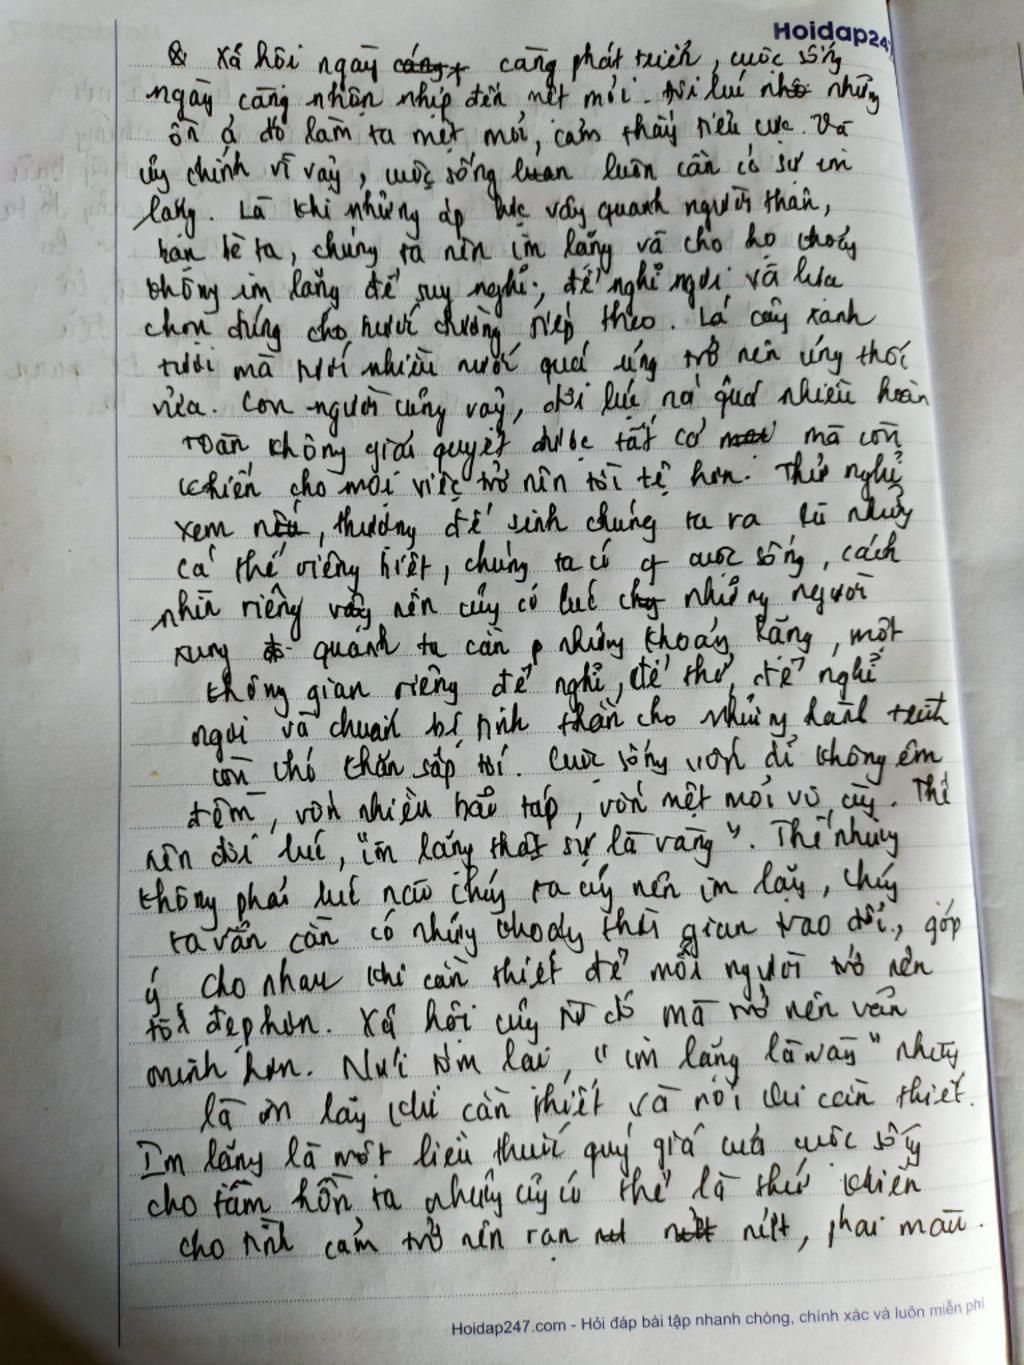 Hoidap247
Xã hội ngày càng phát triển, cuộc sống
ngày càng nhộn nhịp đến mệt mỏi. Đôi lúc những
ồn ã đó làm ta mệt mỏi, cảm thấy tiêu cực. Và
cũng chính vì vậy, cuộc sống luôn cần có sự im
lặng. Là khi những áp lực vây quanh người thân,
bạn bè ta, chúng ta nên im lặng và cho họ khoảng
không im lặng để suy nghĩ, để nghỉ ngơi và lựa
chọn đúng cho bước đường tiếp theo. Lá cây xanh
tươi mà tưới nhiều nước quá cũng trở nên úng thối
nữa. Con người cũng vậy, đôi lúc nói quá nhiều hoàn
toàn không giải quyết được tất cả mà còn
khiến cho mọi việc trở nên tồi tệ hơn. Thử nghĩ
xem, thượng đế sinh chúng ta ra là những
cá thể riêng biệt, chúng ta có cuộc sống, cách
nhìn riêng nên cũng có lúc những người
xung quanh ta cần những khoảng lặng, một
không gian riêng để nghĩ, để thở, để nghỉ
ngơi và chuẩn bị tinh thần cho những hành trình
còn khó khăn sắp tới. Cuộc sống vốn dĩ không êm
đềm, vốn nhiều bão táp, vốn mệt mỏi vô cùng. Thế
nên đôi lúc, "im lặng thật sự là vàng". Thế nhưng
không phải lúc nào chúng ta cũng nên im lặng, chúng
ta vẫn cần có những khoảng thời gian trao đổi, góp
ý cho nhau khi cần thiết để mỗi người trở nên
tốt đẹp hơn. Xã hội cũng từ đó mà trở nên văn
minh hơn. Nói tóm lại, "im lặng là vàng" nhưng
là im lặng khi cần thiết và nói khi cần thiết.
Im lặng là một liều thuốc quý giá của cuộc sống
cho tâm hồn ta nhưng cũng có thể là thứ khiến
cho tình cảm trở nên rạn nứt, phai màu.
Hoidap247.com - Hỏi đáp bài tập nhanh chóng, chính xác và luôn miễn phí